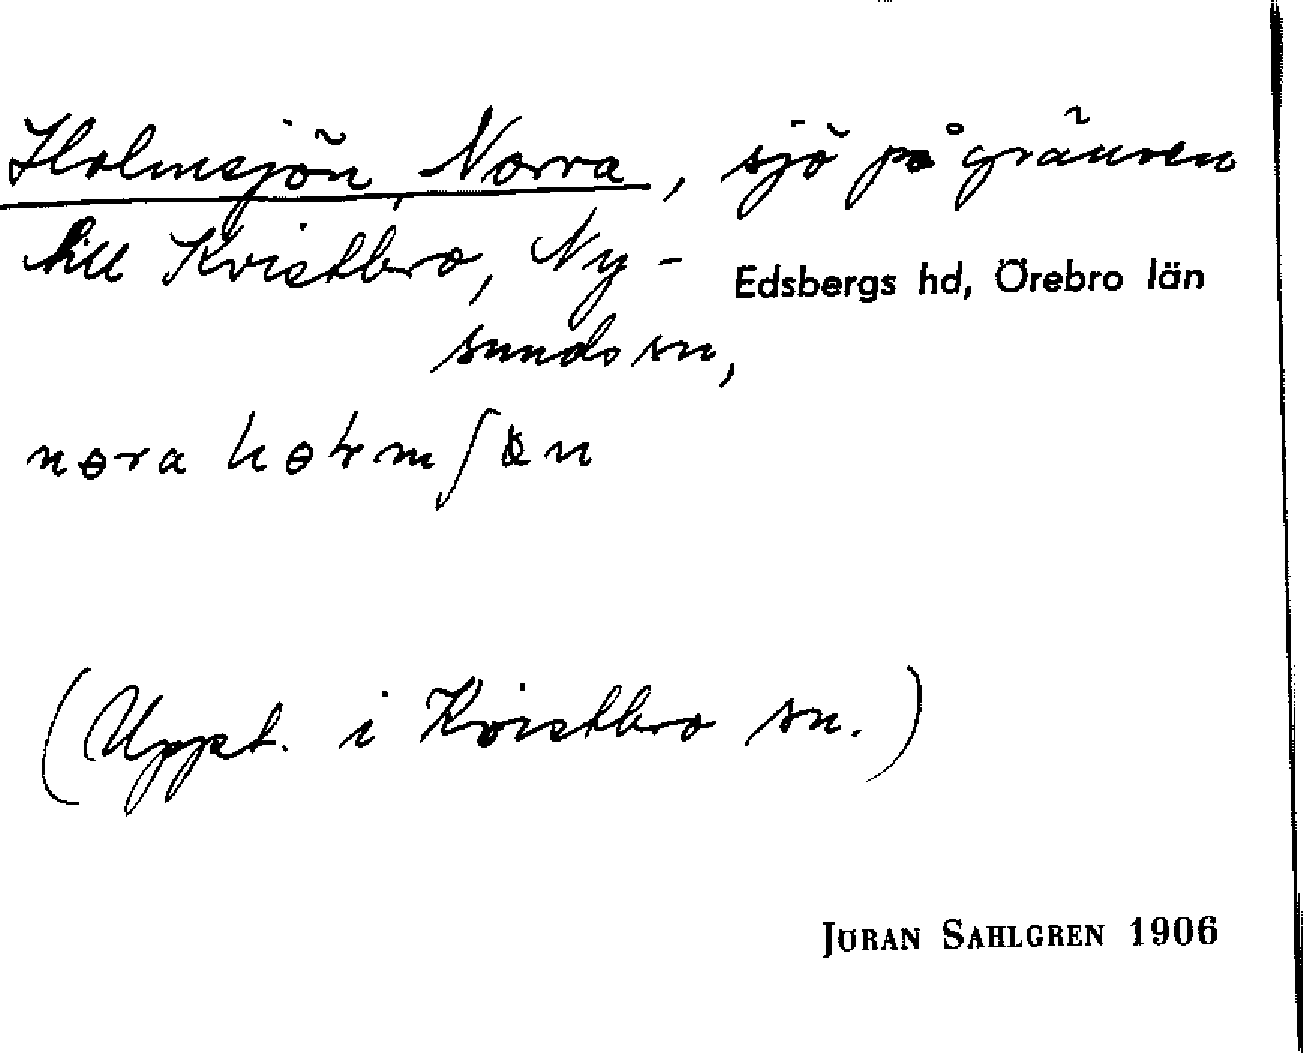 Holmsjön, Norra, sjö på gränsen
till Kvistbro, Ny-
Edsbergs hd, Örebro län
sunds sn,
nɵra hɵłmʃɵn
(Uppt. i Kvistbro sn.)
JÖRAN SAHLGREN 1906